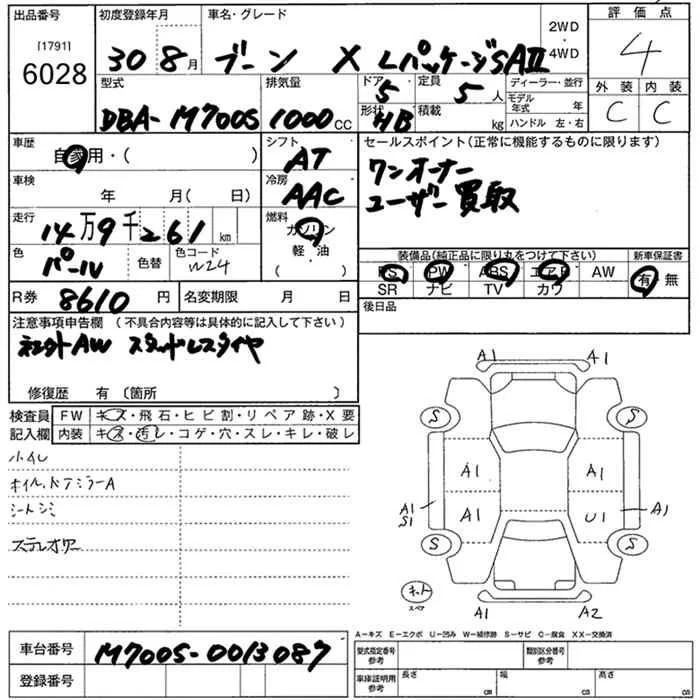 出品番号
[1791]
6028
初度登録年月
30 8月
車名・グレード
ブーン X LパッケージSAⅢ
2WD
・
4WD
評価点
4
外装 内装
C C
型式
DBA-M700S
排気量
1000cc
ドア
5
形状
HB
定員
5人
積載
kg
ディーラー・並行
モデル年式 年
ハンドル 左・右
車歴
自家用・( )
車検
年 月( 日)
走行
14万9千261km
色
パール
色替
色コード
W24
R券 8610円
名変期限 月 日
シフト
AT
冷房
AAC
燃料
ガソリン
軽・油
( )
セールスポイント(正常に機能するものに限ります)
ワンオーナー
ユーザー買取
装備品(純正品に限り丸をつけて下さい)
PS PW ABS エアB AW
SR ナビ TV カワ
新車保証書
有 無
後日品
注意事項申告欄 (不具合内容等は具体的に記入して下さい)
社外AW スタッドレスタイヤ
修復歴 有〔箇所 〕
検査員
記入欄
FW キズ・飛石・ヒビ割・リペア跡・X要
内装 キズ・汚レ・コゲ・穴・スレ・キレ・破レ
オイル、ドアミラーA
シートシミ
ステレオワー
A1 A1
S S
A1 A1
A1
S1
A1 U1 A1
S S
キット
スペア
A1 A2
A-キズ E-エクボ U-凹み W-補修跡 S-サビ C-腐食 XX-交換済
車台番号 M700S-0013087
登録番号
型式指定番号
参考
類別区分番号
参考
車庫証明用
参考
長さ cm
幅 cm
高さ cm